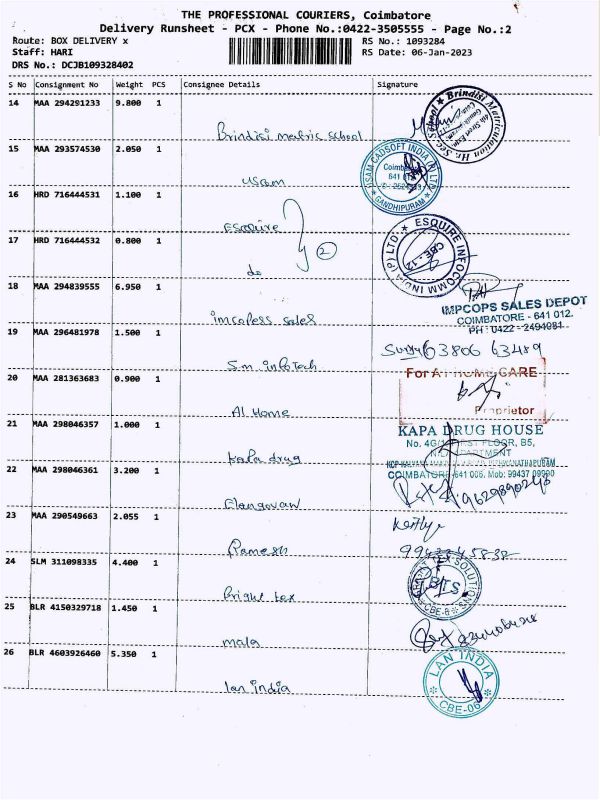 THE PROFESSIONAL COURIERS, Coimbatore
Delivery Runsheet - PCX - Phone No.:0422-3505555 - Page No.:2
Route: BOX DELIVERY x RS No.: 1093284
Staff: HARI RS Date: 06-Jan-2023
DRS No.: DCJB109328402
S No Consignment No Weight PCS Consignee Details Signature
14 MAA 294291233 9.800 1
Brindisi matric school
Brindisi Matriculation Hr. Sec. School
15 MAA 293574530 2.050 1
USAM CADSOFT INDIA (P) LTD
Coimbatore
641 012
GANDHIPURAM
usam
16 HRD 716444531 1.100 1
Esquire
2
17 HRD 716444532 0.800 1
ESQUIRE INFOCOMM INDIA (P) LTD
CBE - 12
do
18 MAA 294839555 6.950 1
IMPCOPS SALES DEPOT
COIMBATORE - 641 012.
PH : 0422 - 2494981
imcopess sales
19 MAA 296481978 1.500 1
63806 63489
S.m infoTech
20 MAA 281363683 0.900 1
For A1 HOME CARE
Proprietor
A1 Home
21 MAA 298046357 1.000 1
KAPA DRUG HOUSE
FIRST FLOOR, B5,
COIMBATORE 641 005. Mob: 99437 09990
Kala drug
22 MAA 298046361 3.200 1
9629890248
Elangovan
23 MAA 290549663 2.055 1
Ramesh
24 SLM 311098335 4.400 1
CBE-6
Bright tex
25 BLR 4150329718 1.450 1
mala
26 BLR 4603926460 5.350 1
LAN INDIA
CBE-06
lan india